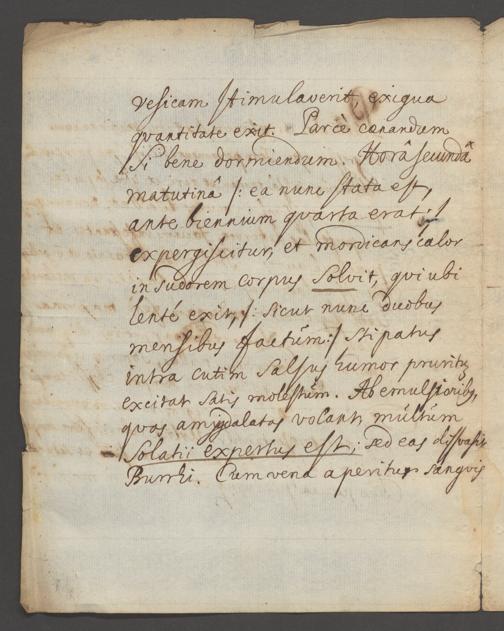 vesicam stimulaverit, exigua
quantitate exit. Parcè cœnandum
si bene dormiendum. Horâ secundâ
matutinâ /: ea nunc stata est,
ante biennium quarta erat :/
expergiscitur, et mordicans calor
in sudorem corpus solvit, qui ubi
lenté exit, /: sicut nunc duobus
mensibus factum :/ stipatus
intra cutim salsus humor pruritū
excitat satis molestum. Ab emulsionibus,
quas amygdalatas vocant, multum
solatii expertus est; sed eas dissuasit
Burrhi. Cum vena aperitur sangvis